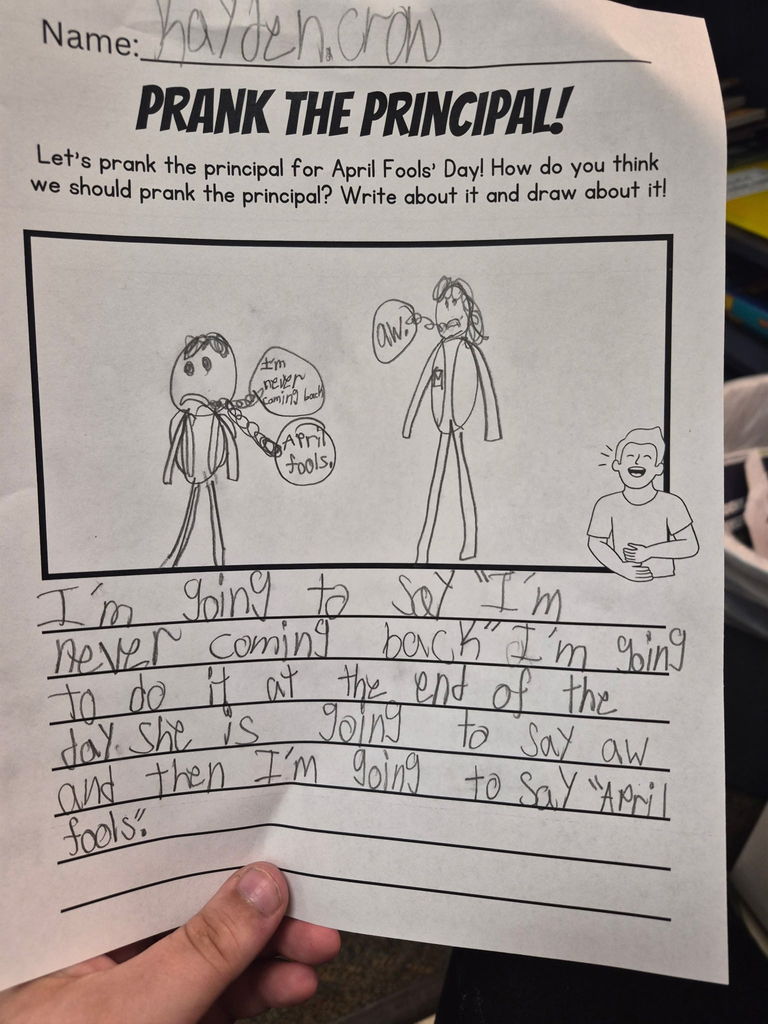 Name: Kayden.crow
PRANK THE PRINCIPAL!
Let's prank the principal for April Fools' Day! How do you think
we should prank the principal? Write about it and draw about it!
aw.
I'm
never
coming back
April
fools.
I'm going to say "I'm
never coming back" I'm going
to do it at the end of the
day. She is going to say aw
and then I'm going to say "April
fools".